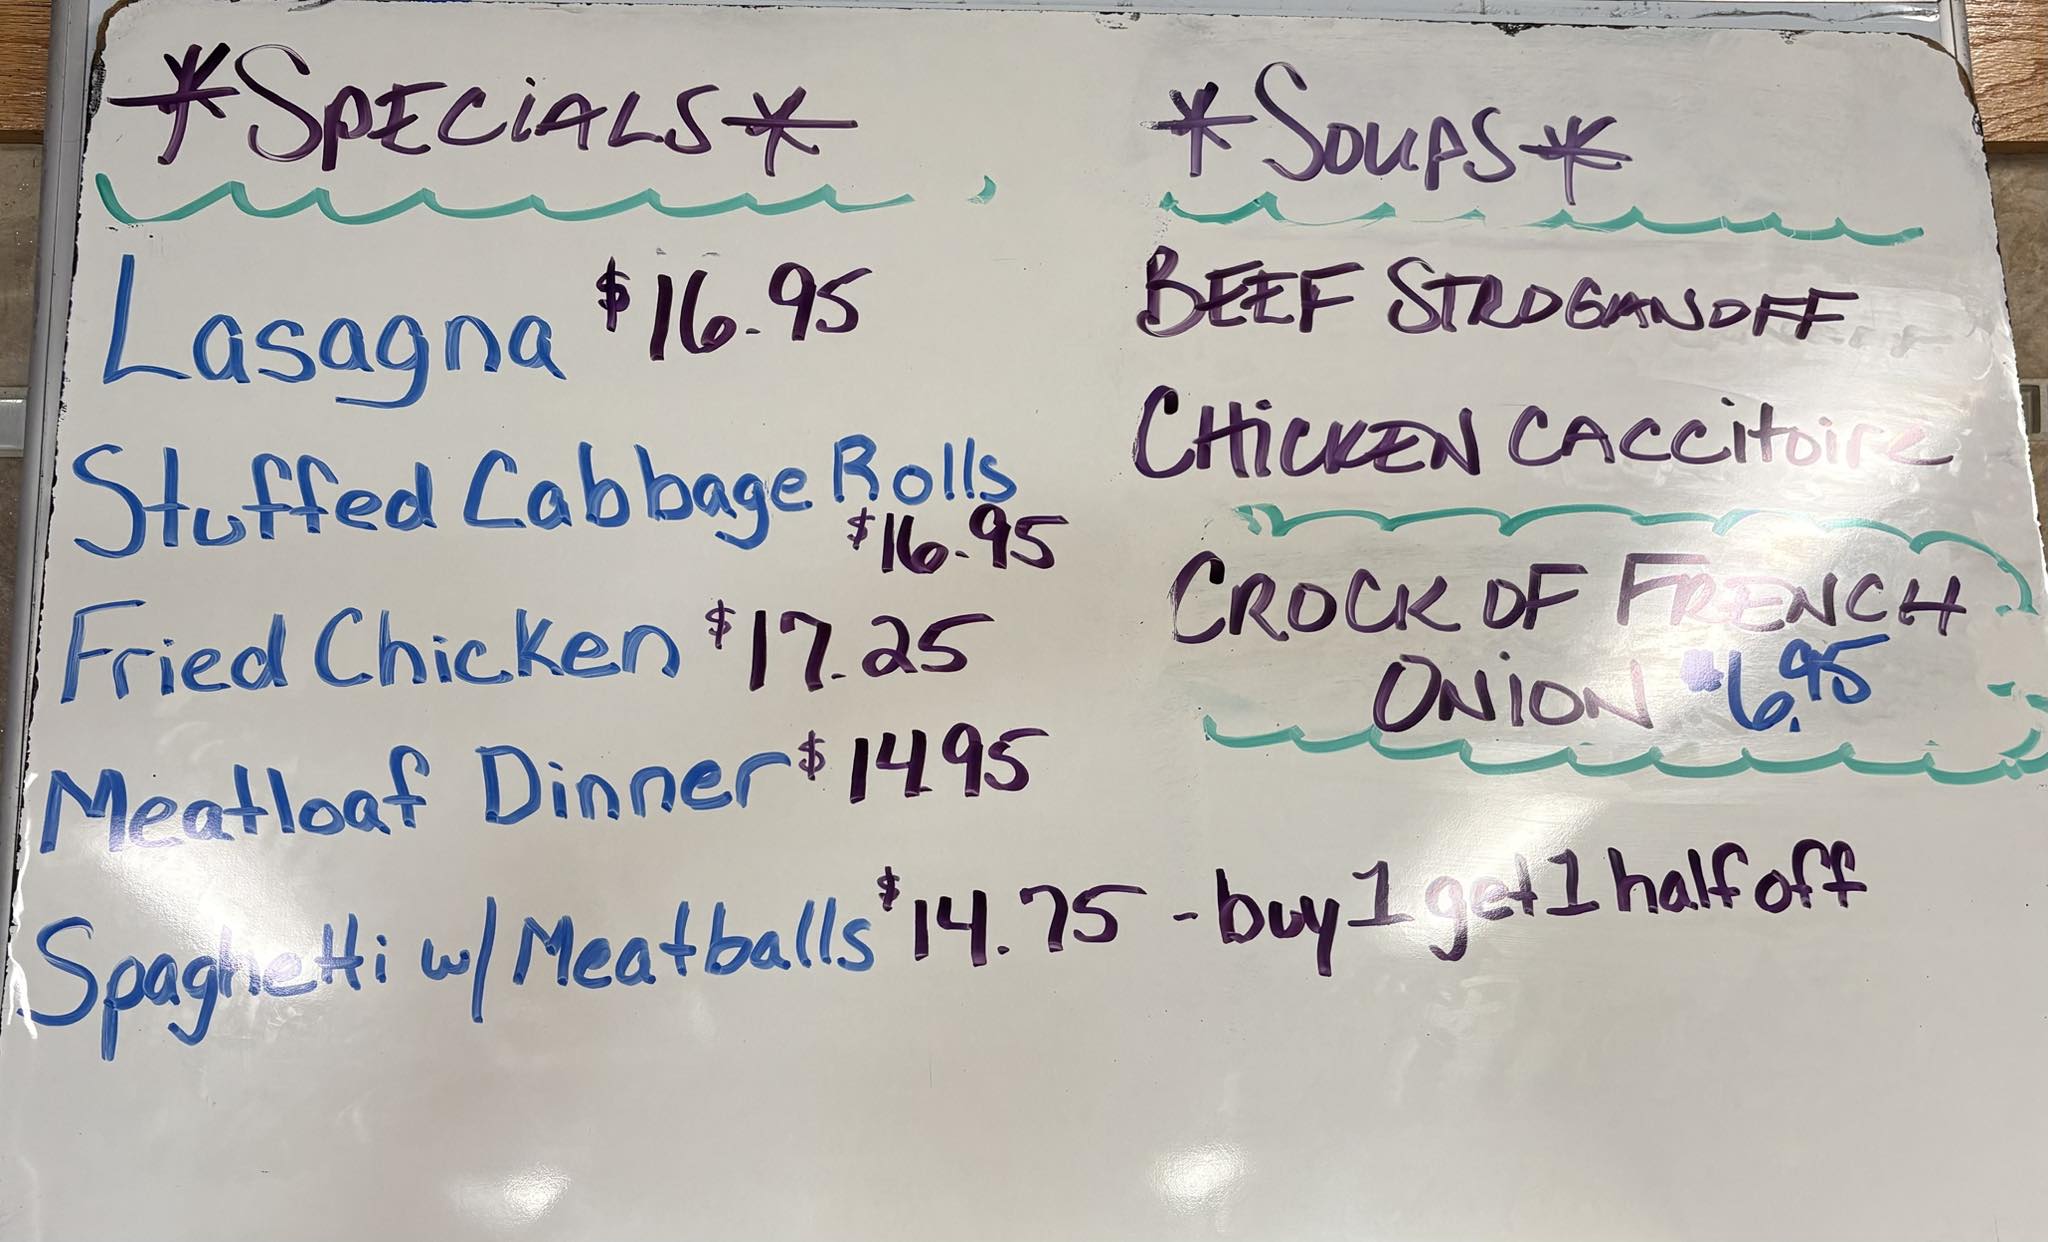 *SPECiALS*
Lasagna $16.95
Stuffed Cabbage Rolls
$16.95
Fried Chicken $17.25
Meatloaf Dinner $14.95
Spaghetti w/ Meatballs $14.75 - buy 1 get 1 half off
*SOUPS*
BEEF STROGANOFF
CHiCKEN CACCitoire
CROCK OF FRENCH
ONiON $6.95